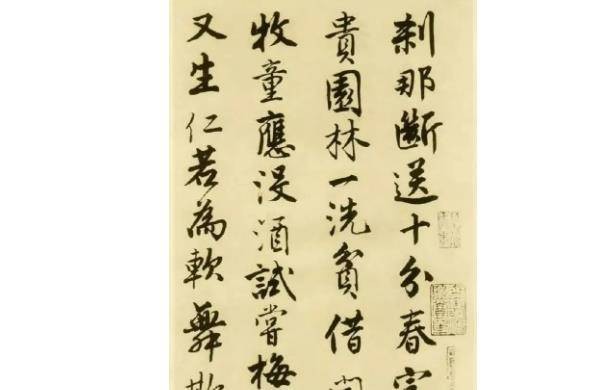 刹那斷送十分春
貴園林一洗貧借
牧童應没酒試嘗梅
又生仁若為軟舞